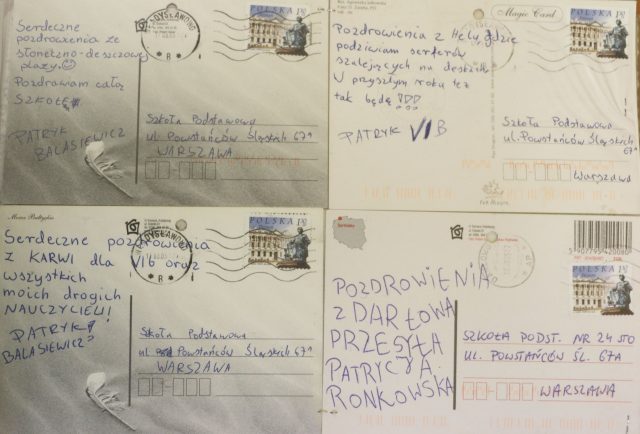 Serdeczne
pozdrowienia ze
słoneczno-deszczowej
plaży
Pozdrawiam całą
SZKOŁĘ
PATRYK
BALASIEWICZ
WŁADYSŁAWOWO
POLSKA
Szkoła Podstawowa
ul. Powstańców Śląskich 67a
WARSZAWA
Magic Card
Pozdrowienia z Helu, gdzie
podziwiam serferów
szalejących na deskach
W przyszłym roku też
tak będę !!!
PATRYK VI B
POLSKA
Szkoła Podstawowa
ul. Powstańców Śląskich
67a
Warszawa
Morze Bałtyckie
Serdeczne pozdrowienia
z KARWI dla VI b oraz
wszystkich
moich drogich
NAUCZYCIELI!
PATRYK
BALASIEWICZ
POLSKA
Szkoła Podstawowa
ul. Powstańców Śląskich 67a
WARSZAWA
POZDROWIENIA
Z DARŁOWA
PRZESYŁA
PATRYCJA
RONKOWSKA
5907795420080
POLSKA
SZKOŁA PODST. NR 24 STO
UL. POWSTAŃCÓW ŚL. 67A
WARSZAWA